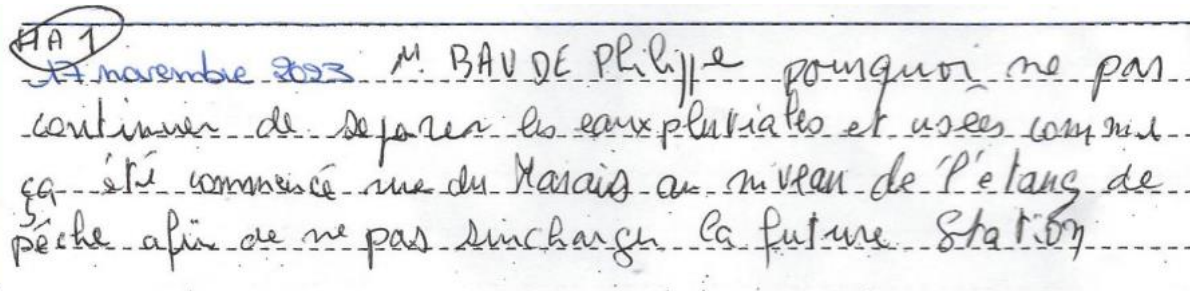 HA 1
17 novembre 2023 M. BAUDE Philippe pourquoi ne pas
continuer de séparer les eaux pluviales et usées comme
ça été commencé rue du Marais au niveau de l'étang de
pêche afin de ne pas surcharger la future station